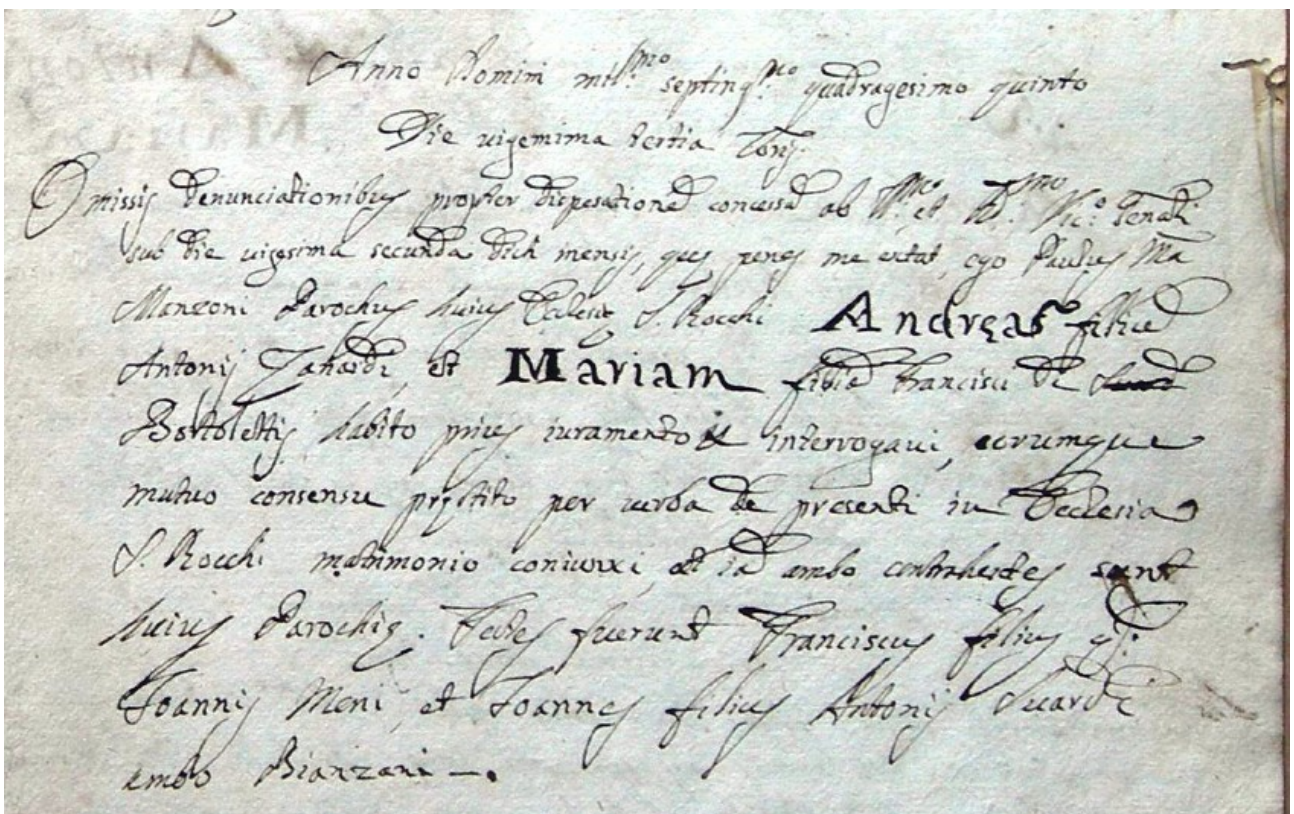 Anno Domini mill.mo septing.mo quadragesimo quinto
Die vigemima tertia
Omissis denunciationibus propter dispesatione concessa ab Ill.mo et R.mo Vic.o
sub die vigesima secunda dicti mensis, que penes me extat, ego Paulus Ma
Manzoni Parochus huius Ecclesię S. Rocchi Andręas filiu
Antonij Zanardi, et Mariam filia Francisci de
Bortolettis habito prius iuramento interrogavi, eorumque
mutuo consensu pręstito per verba de presenti in Ecclesia
S. Rocchi matrimonio coniunxi, et ia ambo contrahentes sunt
huius Parochię. Testes fuerunt Franciscus filius q.
Joannis Meni, et Joannes filius Antonij Suardi
ambo Bianzani —.